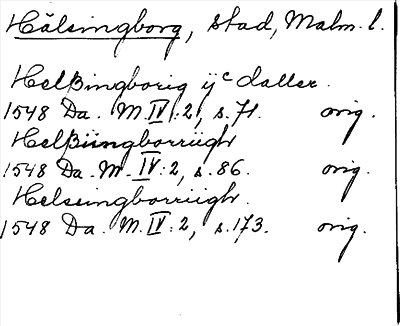 Hälsingborg, stad, Malm. l.
Helßingborig ijᶜ daller.
1548 Da. M. IV:2, s. 71. orig.
Helßiingborriigh
1548 Da. M. IV:2, s. 86. orig.
Helsingborriigh.
1548 Da. M. IV:2, s. 173. orig.